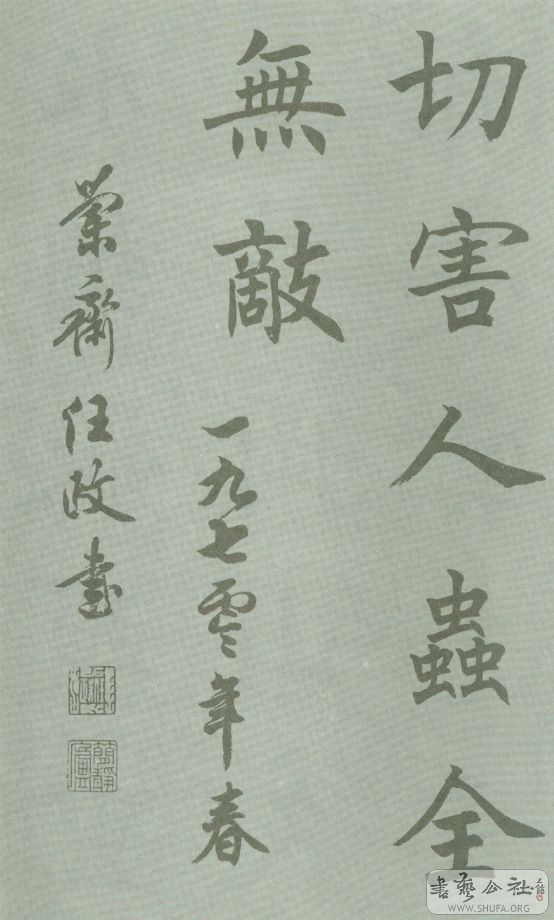 切害人蟲全
無敵
一九七零年春
蘭齋任政書
書藝公社
WWW.SHUFA.ORG